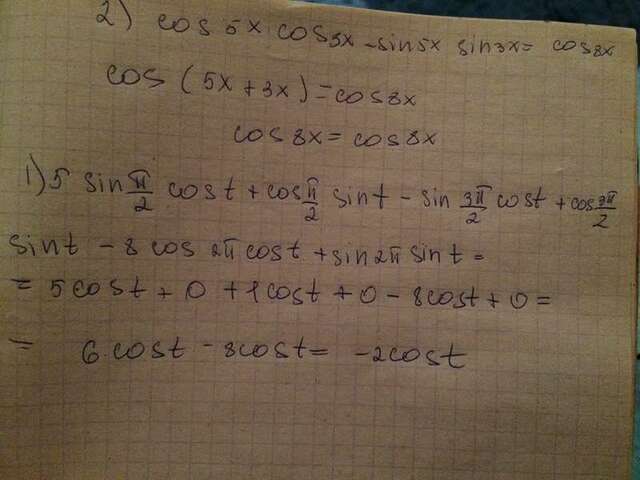 2) cos 5x · cos 3x - sin 5x sin 3x = cos 8x
cos (5x + 3x) = cos 8x
cos 8x = cos 8x
1) 5 sin π/2 cos t + cos π/2 sin t - sin 3π/2 cos t + cos 3π/2
sin t - 8 cos 2π cos t + sin 2π sin t =
= 5 cos t + 0 + 1 cos t + 0 - 8 cos t + 0 =
= 6 · cos t - 8 cos t = -2 cos t